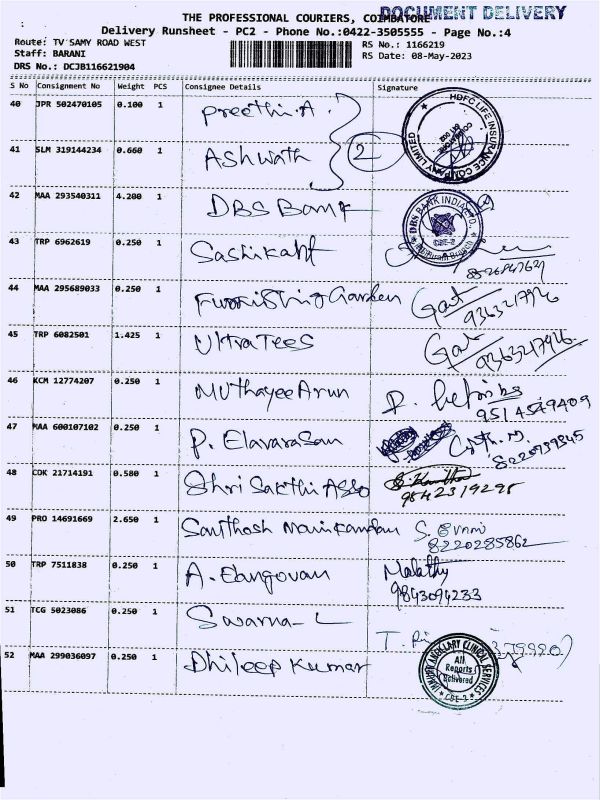 DOCUMENT DELIVERY
THE PROFESSIONAL COURIERS, COIMBATORE
Delivery Runsheet - PC2 - Phone No.:0422-3505555 - Page No.:4
Route: TV SAMY ROAD WEST RS No.: 1166219
Staff: BARANI RS Date: 08-May-2023
DRS No.: DCJB116621904
S No Consignment No Weight PCS Consignee Details Signature
40 JPR 502470105 0.100 1 Preethi.A
HDFC LIFE INSURANCE COMPANY LIMITED
41 SLM 319144234 0.660 1 Ashwath 2
42 MAA 293540311 4.200 1 DBS Bank
DBS BANK INDIA LTD. CBE-2
43 TRP 6962619 0.250 1 Sashikant
44 MAA 295689033 0.250 1 Furnishing Garden 9363217926
45 TRP 6082501 1.425 1 Ultra Tees 9363217926
46 KCM 12774207 0.250 1 Muthayee Arun 9514549409
47 MAA 600107102 0.250 1 P. Elavarasan 8220939345
48 COK 21714191 0.580 1 Shri Sakthi Asso 9842319295
49 PRO 14691669 2.650 1 Santhosh Manikandan 8220285862
50 TRP 7511838 0.250 1 A. Elangovan Malathy
9843094233
51 TCG 5023086 0.250 1 Swarna-L
52 MAA 299036097 0.250 1 Dhileep Kumar
CLINICAL SERVICES All Reports Delivered CBE-2